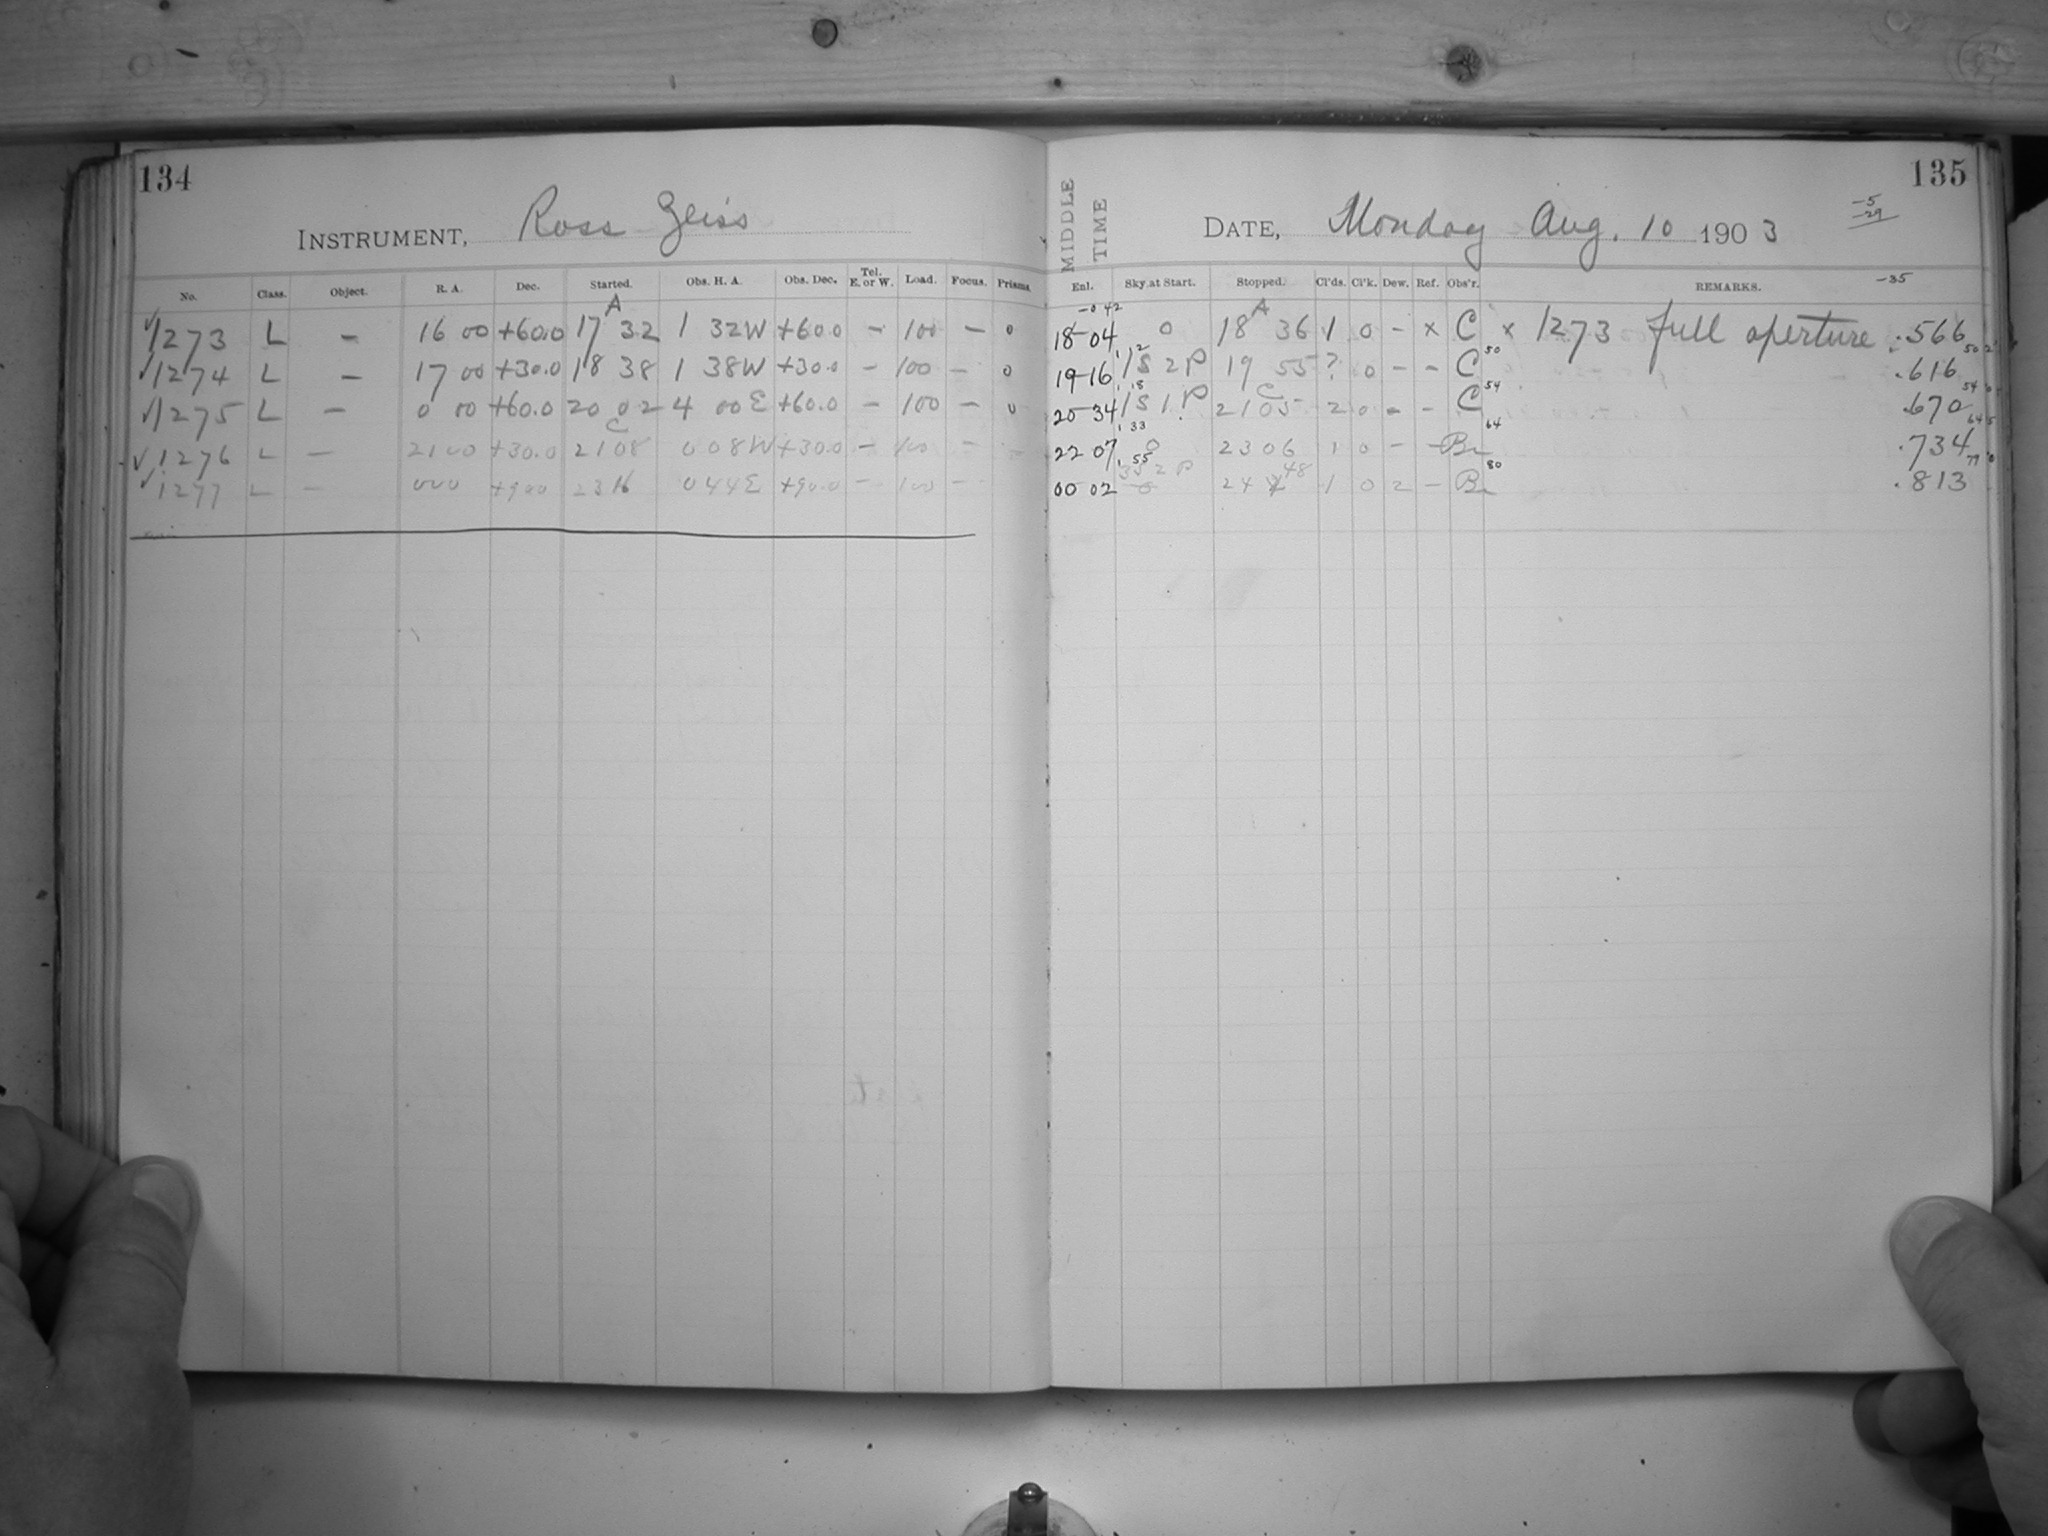 134
INSTRUMENT, Ross Zeiss
No. Class. Object. R. A. Dec. Started. Obs. H. A. Obs. Dec. Tel. E. or W. Load. Focus. Prisms.
A
√1273 L – 16 00 +60.0 17 32 1 32W +60.0 – 100 – 0
√1274 L – 17 00 +30.0 18 38 1 38W +30.0 – 100 – 0
√1275 L – 0 00 +60.0 20 02 4 00E +60.0 – 100 – 0
C
√1276 L – 21 00 +30.0 21 08 0 08W +30.0 – 100 –
√1277 L – 0 00 +90.0 23 16 0 44E +90.0 – 100 –
135
MIDDLE TIME
DATE, Monday Aug. 10 1903
-5
-29
-35
Enl. Sky at Start. Stopped. Cl'ds. Cl'k. Dew. Ref. Obs'r. REMARKS.
-0 42 A
18 04 0 18 36 1 0 – x C x 1273 full aperture .566
12 50
19 16 1S 2P 19 55 ? 0 – – C .616
18 C 54
20 34 1S 1P 21 05 2 0 – – C .670
33 64
22 07 0 23 06 1 0 – – Br .734
55 48 80
00 02 0 24 1 0 2 – Br .813